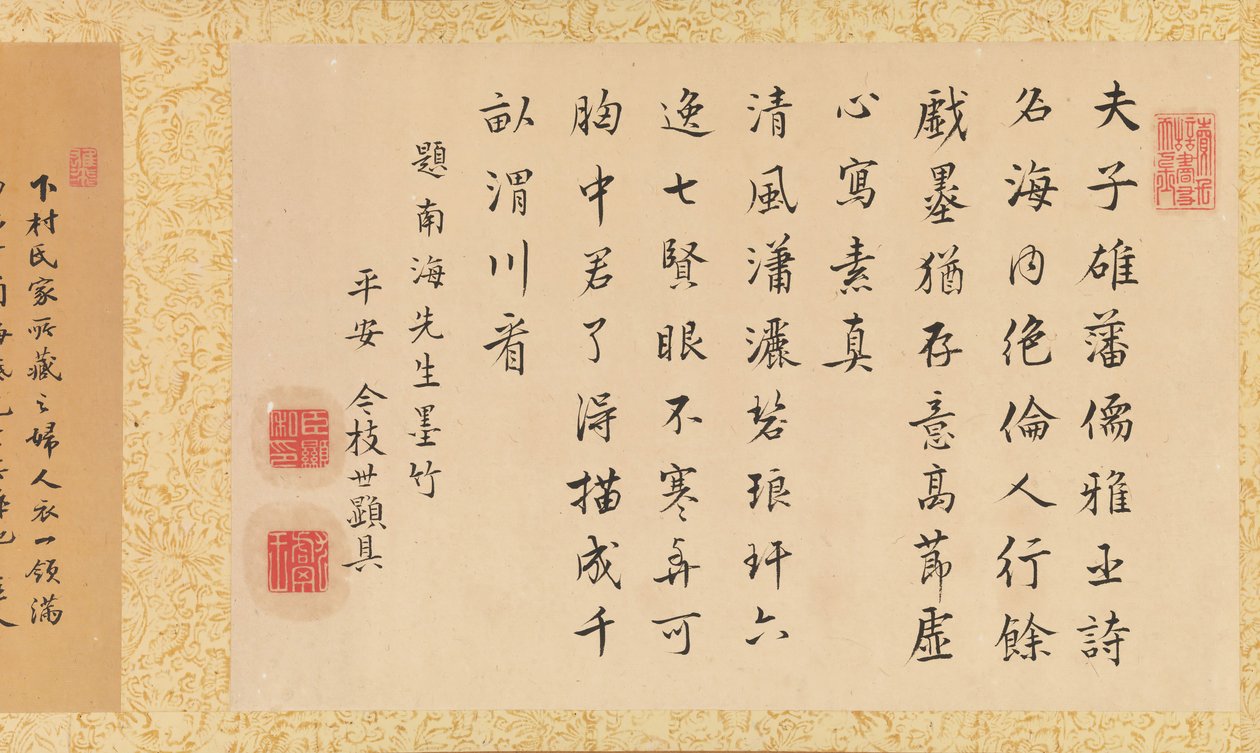 夫子雄藩儒雅臣詩
名海内絶倫人行餘
戯墨猶存意高節虛
心寫素真
清風瀟灑碧琅玕六
逸七賢眼不寒與可
胸中君了得描成千
畝渭川看
題南海先生墨竹
平安 今枝世顕具
下村氏家所藏之婦人衣一領満